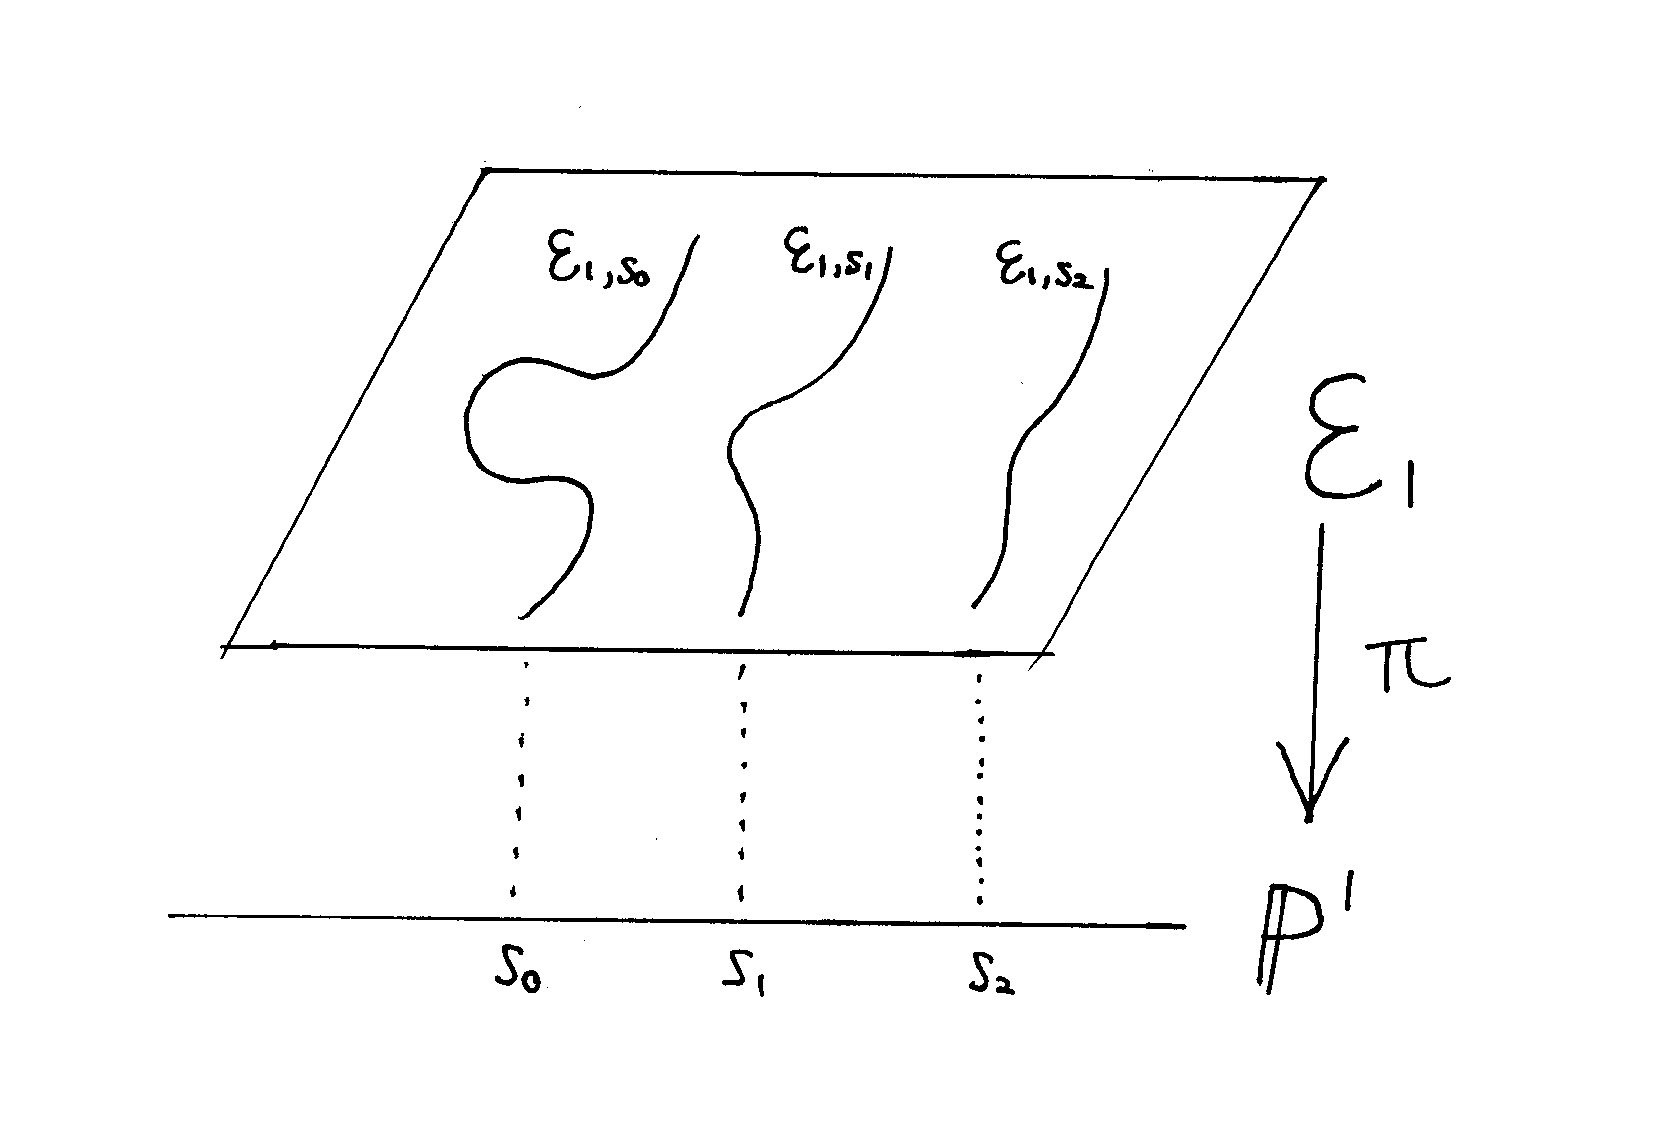 ℰ₁,s₀ ℰ₁,s₁ ℰ₁,s₂
ℰ₁
π
ℙ¹
s₀ s₁ s₂